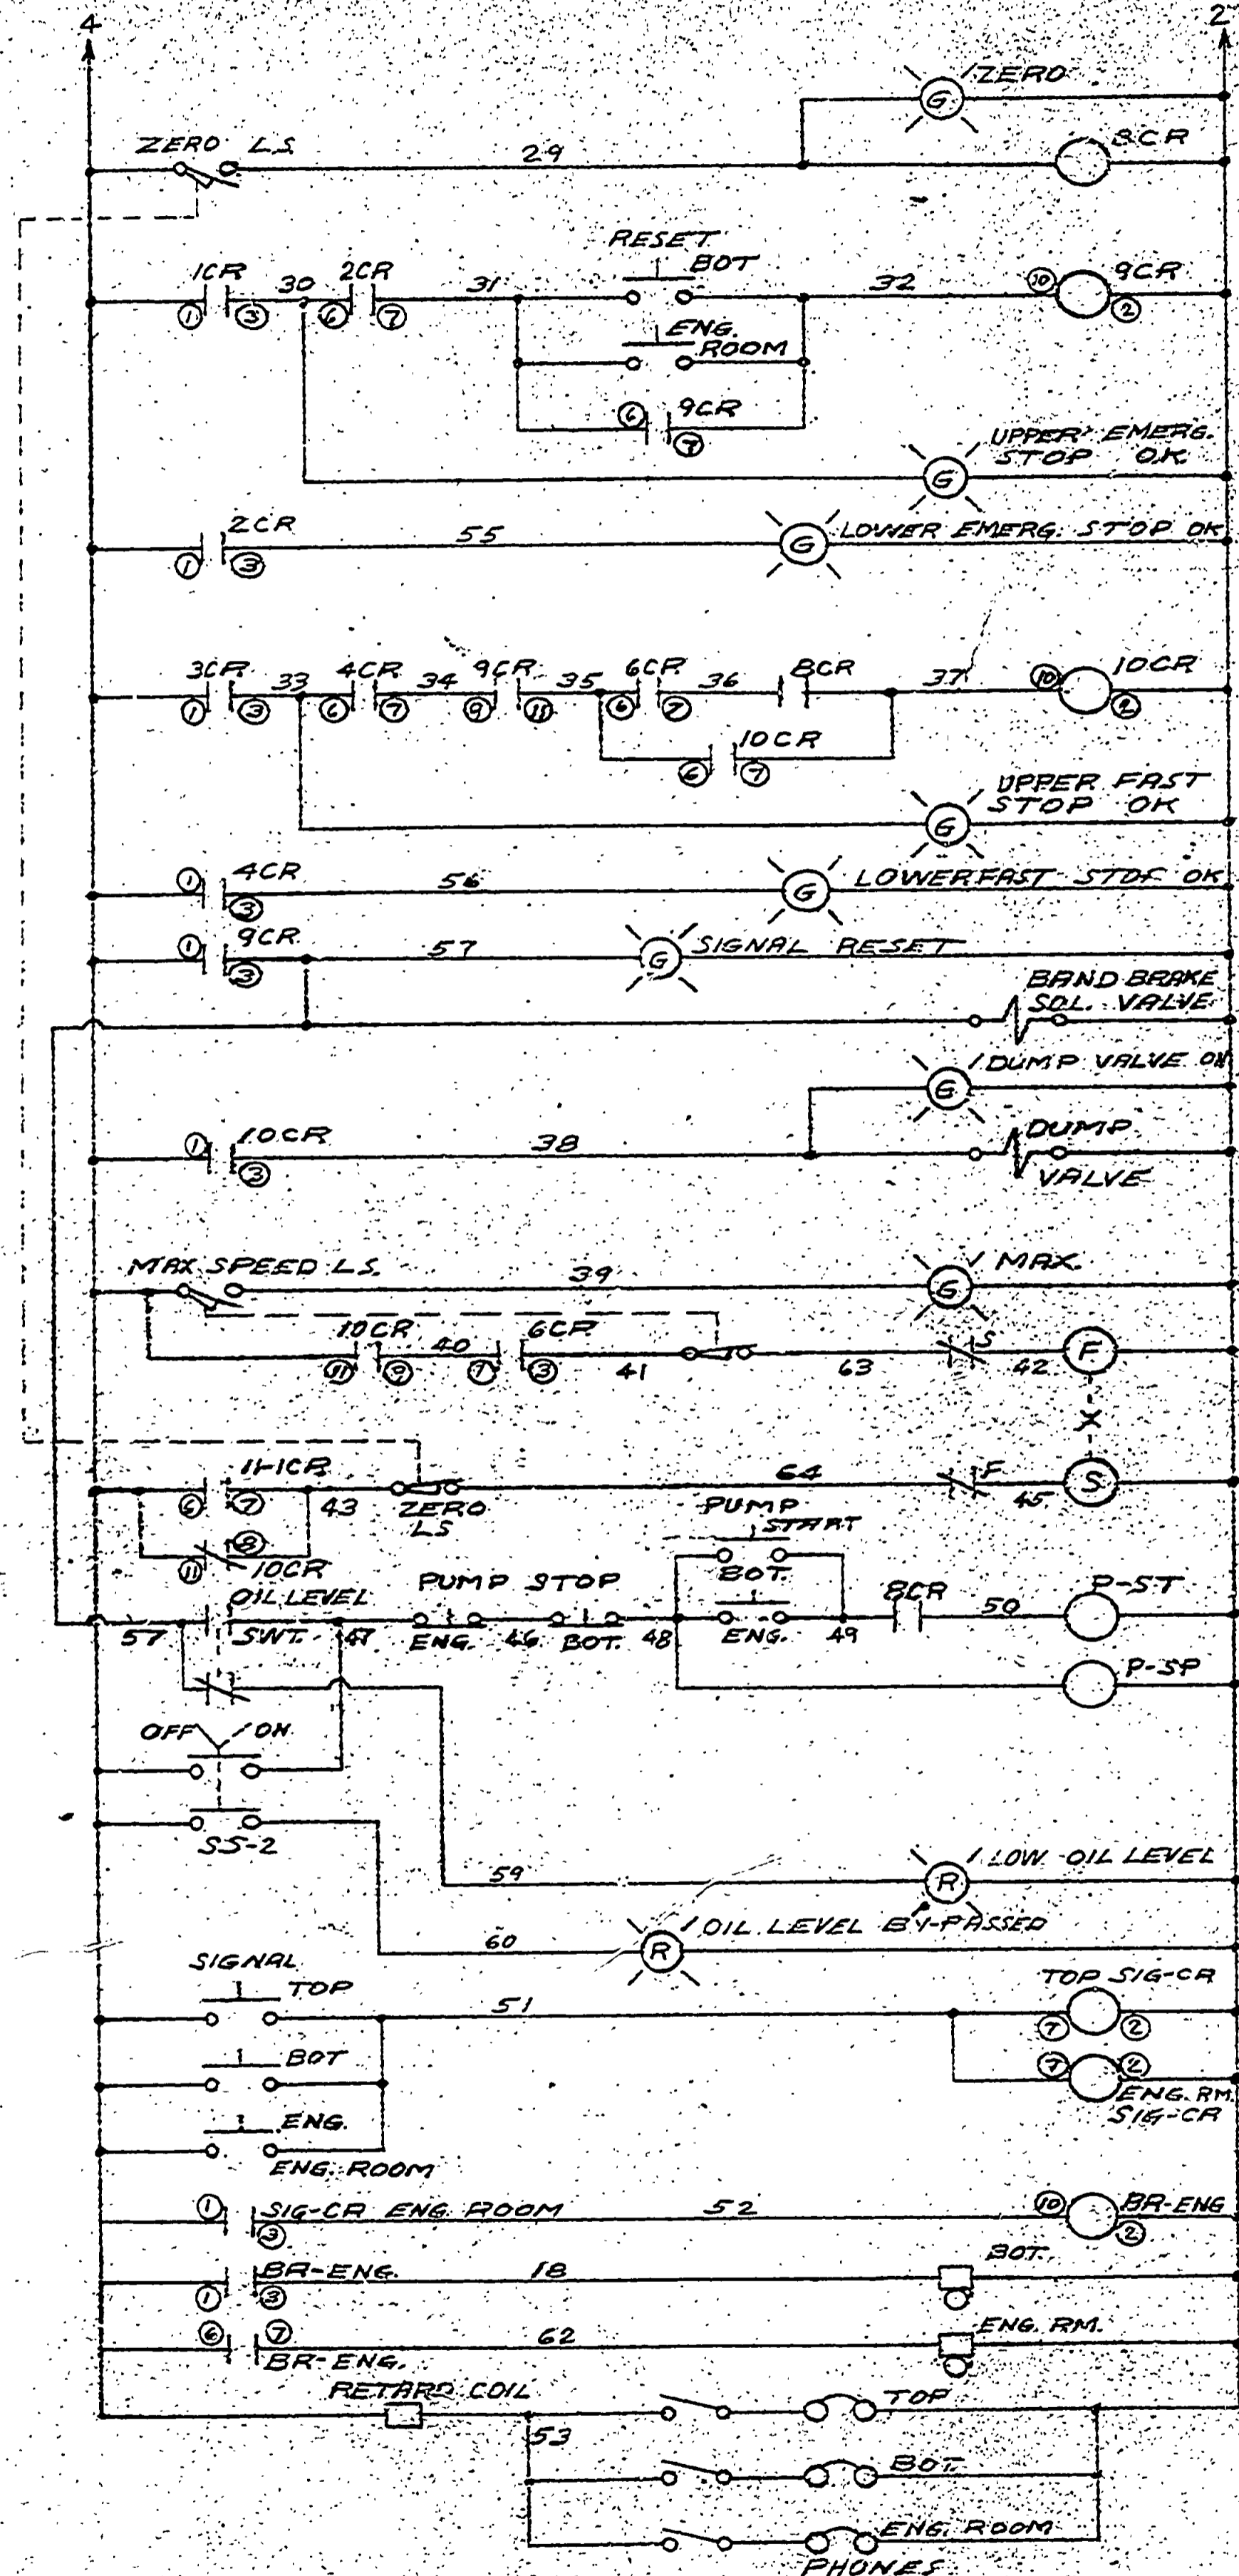 4 2
ZERO
G
ZERO LS. 29 8CR
RESET
BOT
1CR 30 2CR 31 32 10 9CR
1 3 6 7 2
ENG.
ROOM
6 9CR
7
UPPER EMERG.
STOP OK
G
2CR 55 G LOWER EMERG. STOP OK
1 3
3CR 33 4CR 34 9CR 35 6CR 36 8CR 37 10 10CR
1 3 6 7 9 11 6 7 2
10CR
6 7
UPPER FAST
STOP OK
G
1 4CR 56 G LOWER FAST STOP OK
3
1 9CR 57 G SIGNAL RESET
3
BAND BRAKE
SOL. VALVE
DUMP VALVE ON
G
1 10CR 38 DUMP
3 VALVE
MAX SPEED LS. 39 G MAX.
10CR 40 6CR S F
11 9 7 3 41 63 42
X
11-1CR 64 F S
6 7 43 ZERO 45
LS
8
11 10CR
PUMP
START
OIL LEVEL PUMP STOP BOT. 8CR 50 P-ST
57 SWT. 47 ENG. 46 BOT. 48 ENG. 49
P-SP
OFF ON
SS-2
59 R LOW OIL LEVEL
60 R OIL LEVEL BY-PASSED
SIGNAL
TOP 51 TOP SIG-CR
7 2
BOT
7 2
ENG. RM.
SIG-CR
ENG.
ENG. ROOM
1 SIG-CR ENG ROOM 52 10 BR-ENG
3 2
BR-ENG. 18 BOT.
1 3
6 7 62 ENG. RM.
BR-ENG.
RETARD COIL TOP
53
BOT.
ENG. ROOM
PHONES